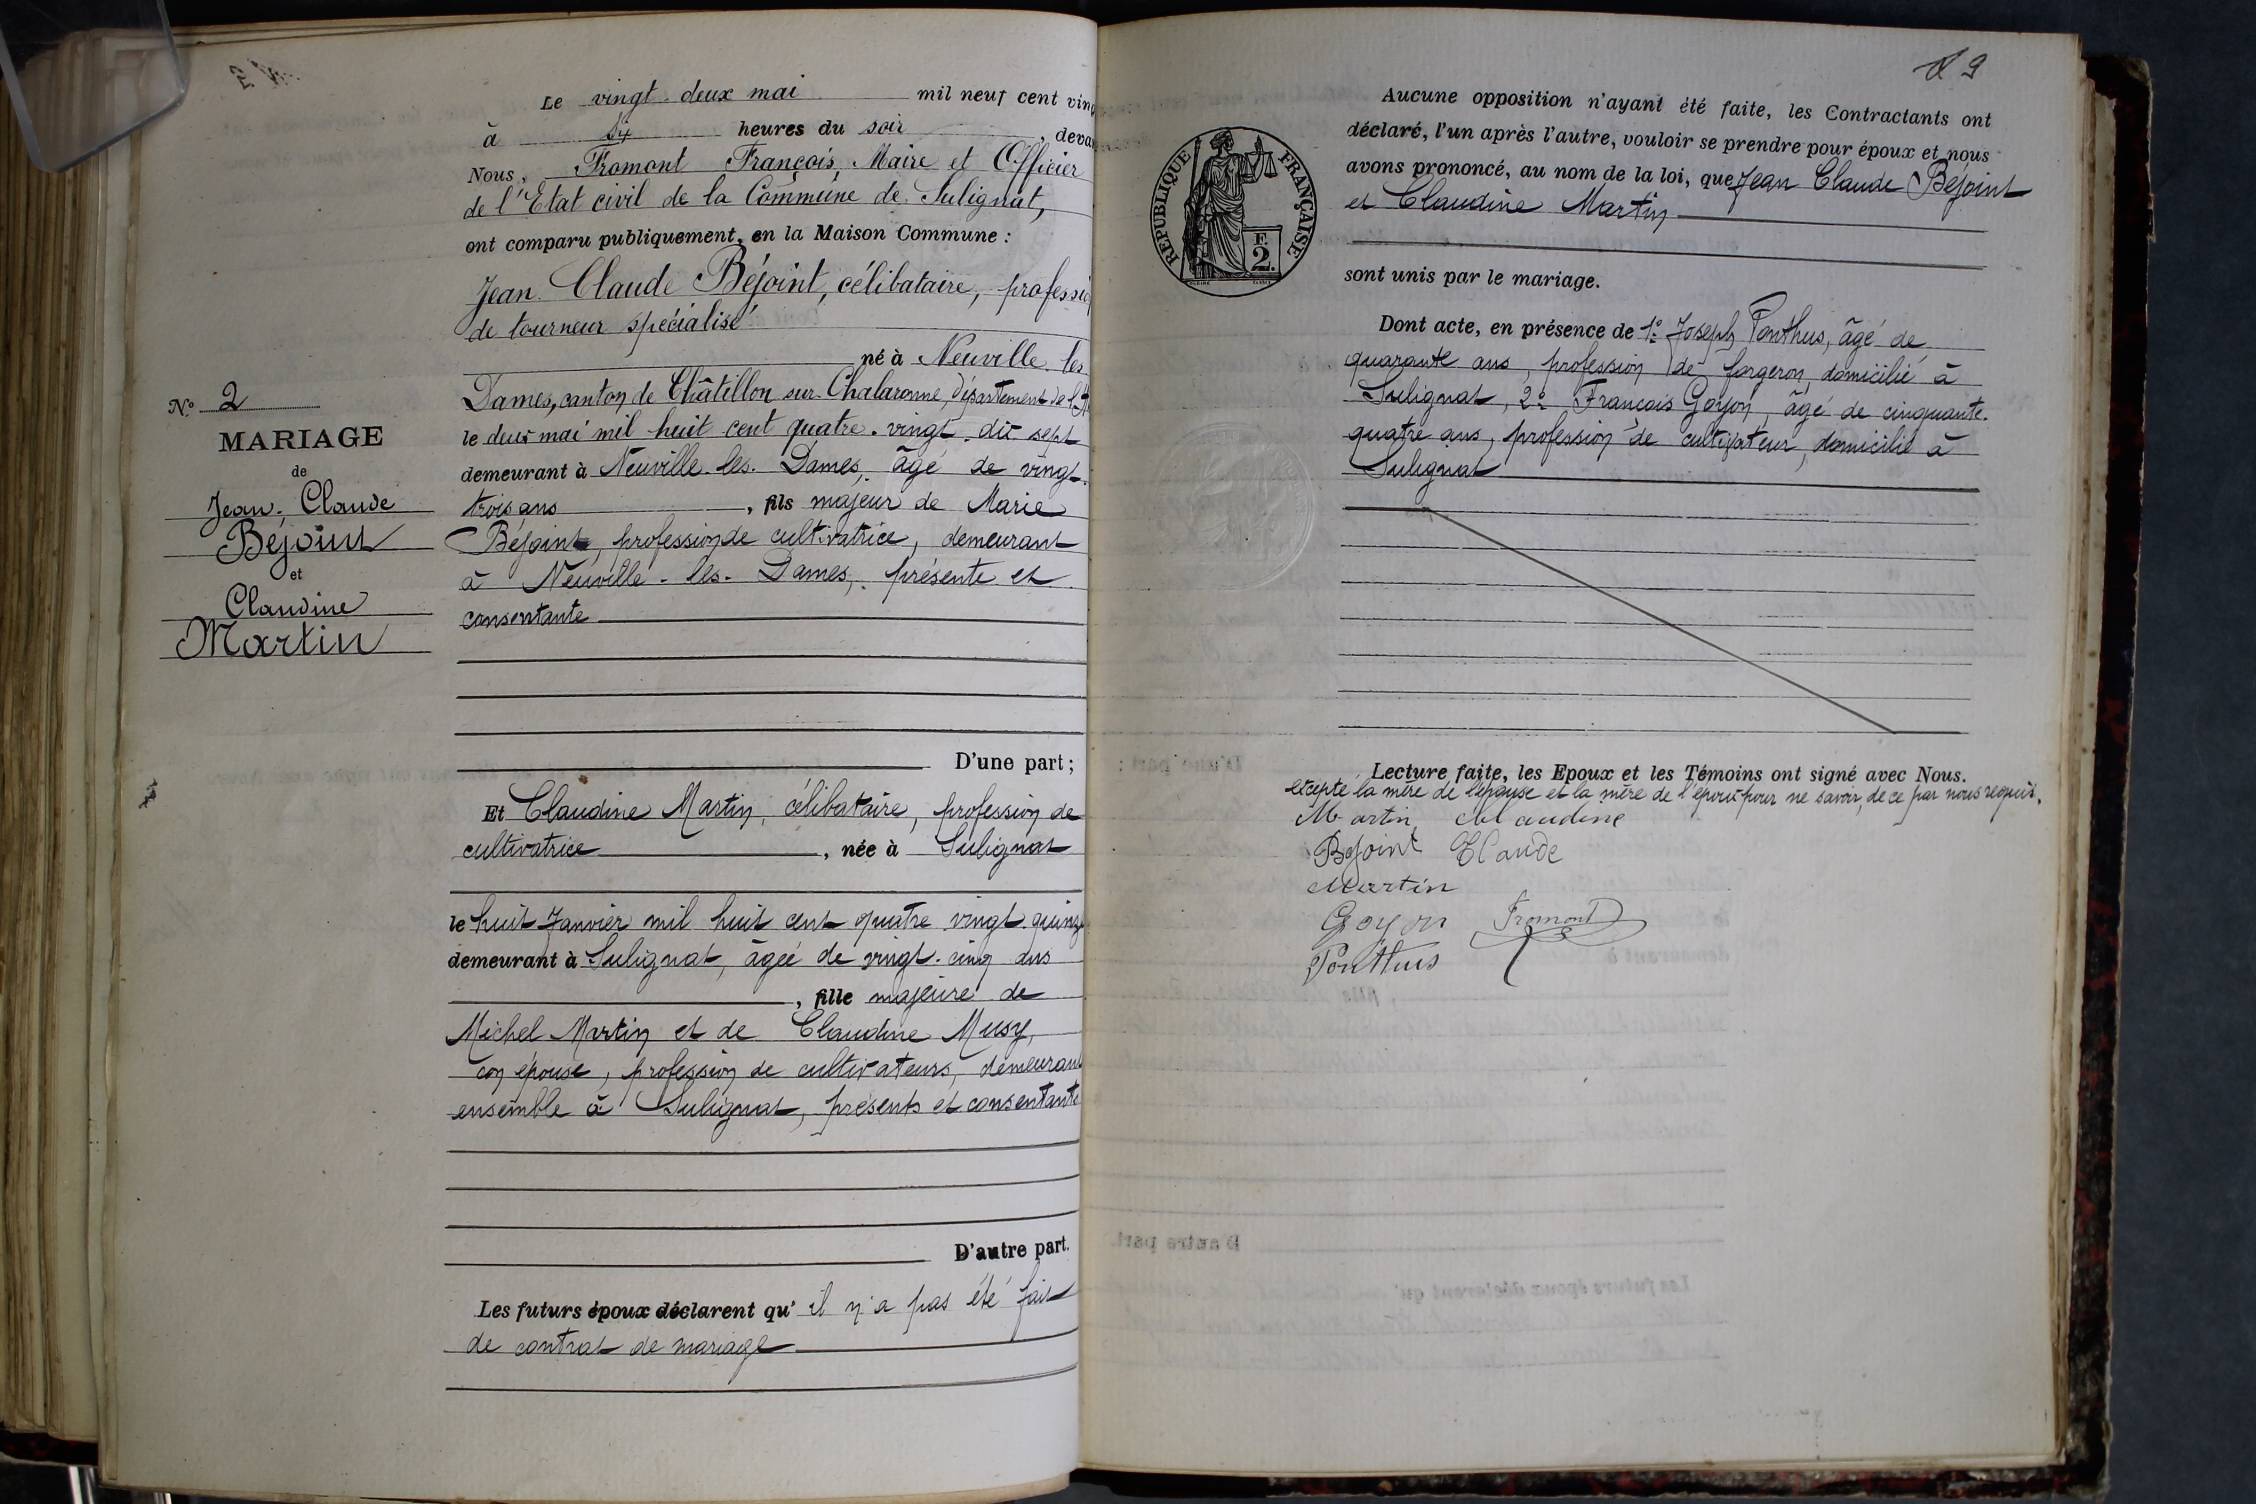 Le vingt deux mai mil neuf cent vin
à six heures du soir, deva
Nous, Fromont François, Maire et Officier
de l'Etat civil de la Commune de Sulignat,
ont comparu publiquement, en la Maison Commune :
Jean Claude Béjoint, célibataire, professio
de tourneur spécialisé
né à Neuville les
Dames, canton de Châtillon sur Chalaronne, Département de l'A
le deux mai mil huit cent quatre-vingt-dix sept
demeurant à Neuville-les-Dames, âgé de vingt-
trois ans, fils majeur de Marie
Béjoint, profession de cultivatrice, demeurant
à Neuville-les-Dames, présente et
consentante
D'une part ;
N° 2
MARIAGE
de
Jean-Claude
Béjoint
et
Claudine
Martin
Et Claudine Martin, célibataire, profession de
cultivatrice, née à Sulignat
le huit Janvier mil huit cent quatre vingt quinze
demeurant à Sulignat, âgée de vingt-cinq ans
, fille majeure de
Michel Martin et de Claudine Musy,
son épouse, profession de cultivateurs, demeurant
ensemble à Sulignat, présents et consentants
D'autre part.
Les futurs époux déclarent qu'il n'a pas été fait
de contrat de mariage
9
REPUBLIQUE FRANÇAISE
F.
2.
Aucune opposition n'ayant été faite, les Contractants ont
déclaré, l'un après l'autre, vouloir se prendre pour époux et nous
avons prononcé, au nom de la loi, que Jean Claude Béjoint
et Claudine Martin
sont unis par le mariage.
Dont acte, en présence de 1° Joseph Ponthus, âgé de
quarante ans, profession de forgeron, domicilié à
Sulignat, 2° François Goyon, âgé de cinquante-
quatre ans, profession de cultivateur, domicilié à
Sulignat
Lecture faite, les Epoux et les Témoins ont signé avec Nous.
excepté la mère de l'épouse et la mère de l'époux pour ne savoir, de ce par nous requis.
Martin Claudine
Béjoint Claude
Martin
Goyon Fromont
Ponthus